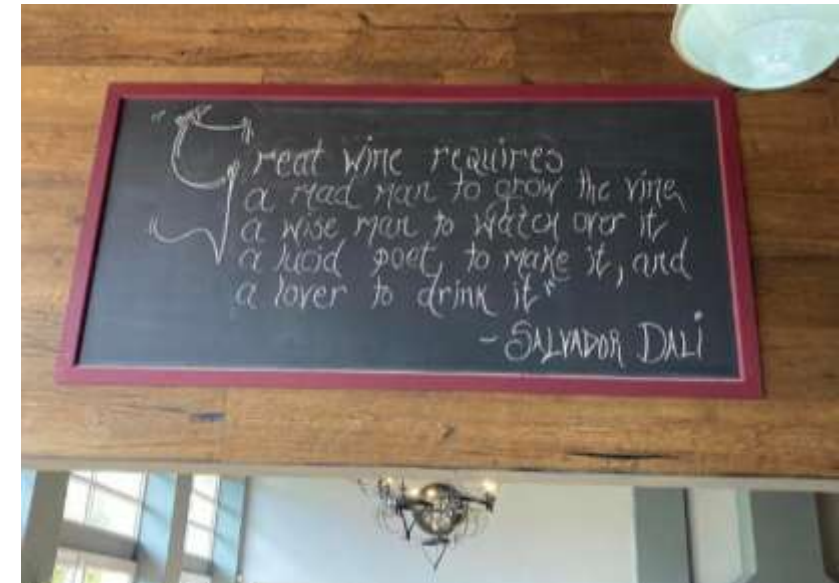 "Great wine requires
a mad man to grow the vine,
a wise man to watch over it,
a lucid poet to make it, and
a lover to drink it"
- SALVADOR DALI